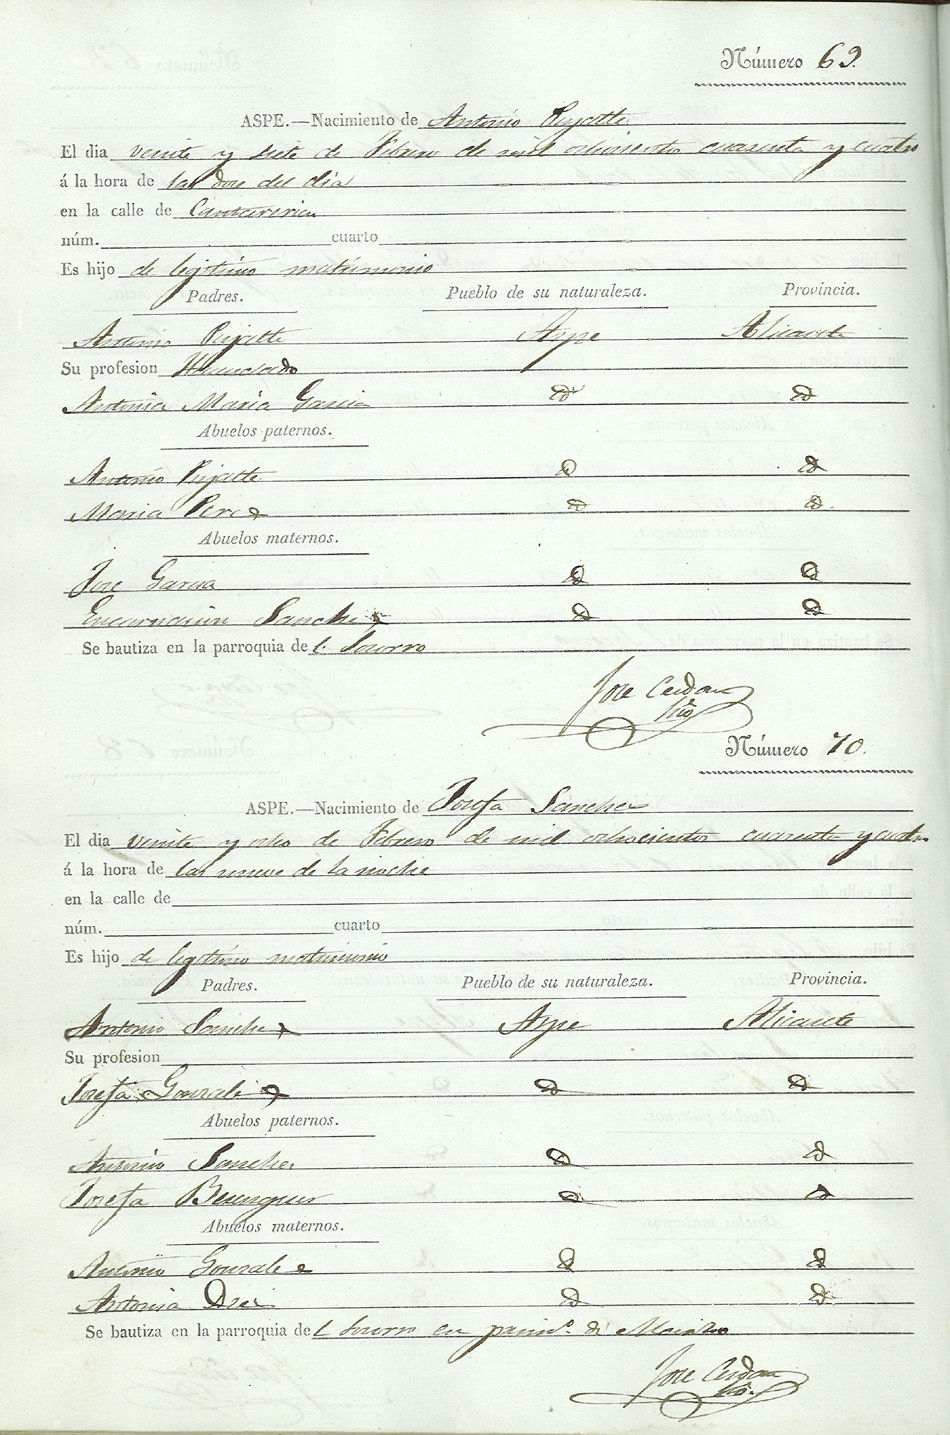 Número 69.
ASPE.—Nacimiento de Antonio Pujalte
El dia veinte y siete de Febrero de mil ochocientos cuarenta y cuatro
á la hora de las doce del dia
en la calle de Cantareria
núm. cuarto
Es hijo de legitimo matrimonio
Padres. Pueblo de su naturaleza. Provincia.
Antonio Pujalte Aspe Alicante
Su profesion Hacendado
Antonia Maria Garcia id id
Abuelos paternos.
Antonio Pujalte id id
Maria Perez id id.
Abuelos maternos.
Jose Garcia id id
Encarnacion Sanchez id id
Se bautiza en la parroquia del Socorro
Jose Cerdan
Número 70.
ASPE.—Nacimiento de Josefa Sanchez
El dia veinte y ocho de Febrero de mil ochocientos cuarenta y cuatro
á la hora de las nueve de la noche
en la calle de
núm. cuarto
Es hijo de legitimo matrimonio
Padres. Pueblo de su naturaleza. Provincia.
Antonio Sanchez Aspe Alicante
Su profesion
Josefa Gonzalez id id
Abuelos paternos.
Antonio Sanchez id id
Josefa Berenguer id id
Abuelos maternos.
Antonio Gonzalez id id
Antonia id id
Se bautiza en la parroquia del Socorro en prim.º de Marzo
Jose Cerdan